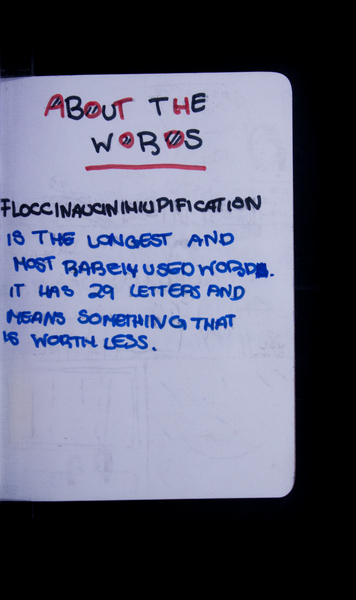 ABOUT THE
WORDS
FLOCCINAUCINIHIUPIFICATION
IS THE LONGEST AND
MOST RARELY USED WORD.
IT HAS 29 LETTERS AND
MEANS SOMETHING THAT
IS WORTH LESS.